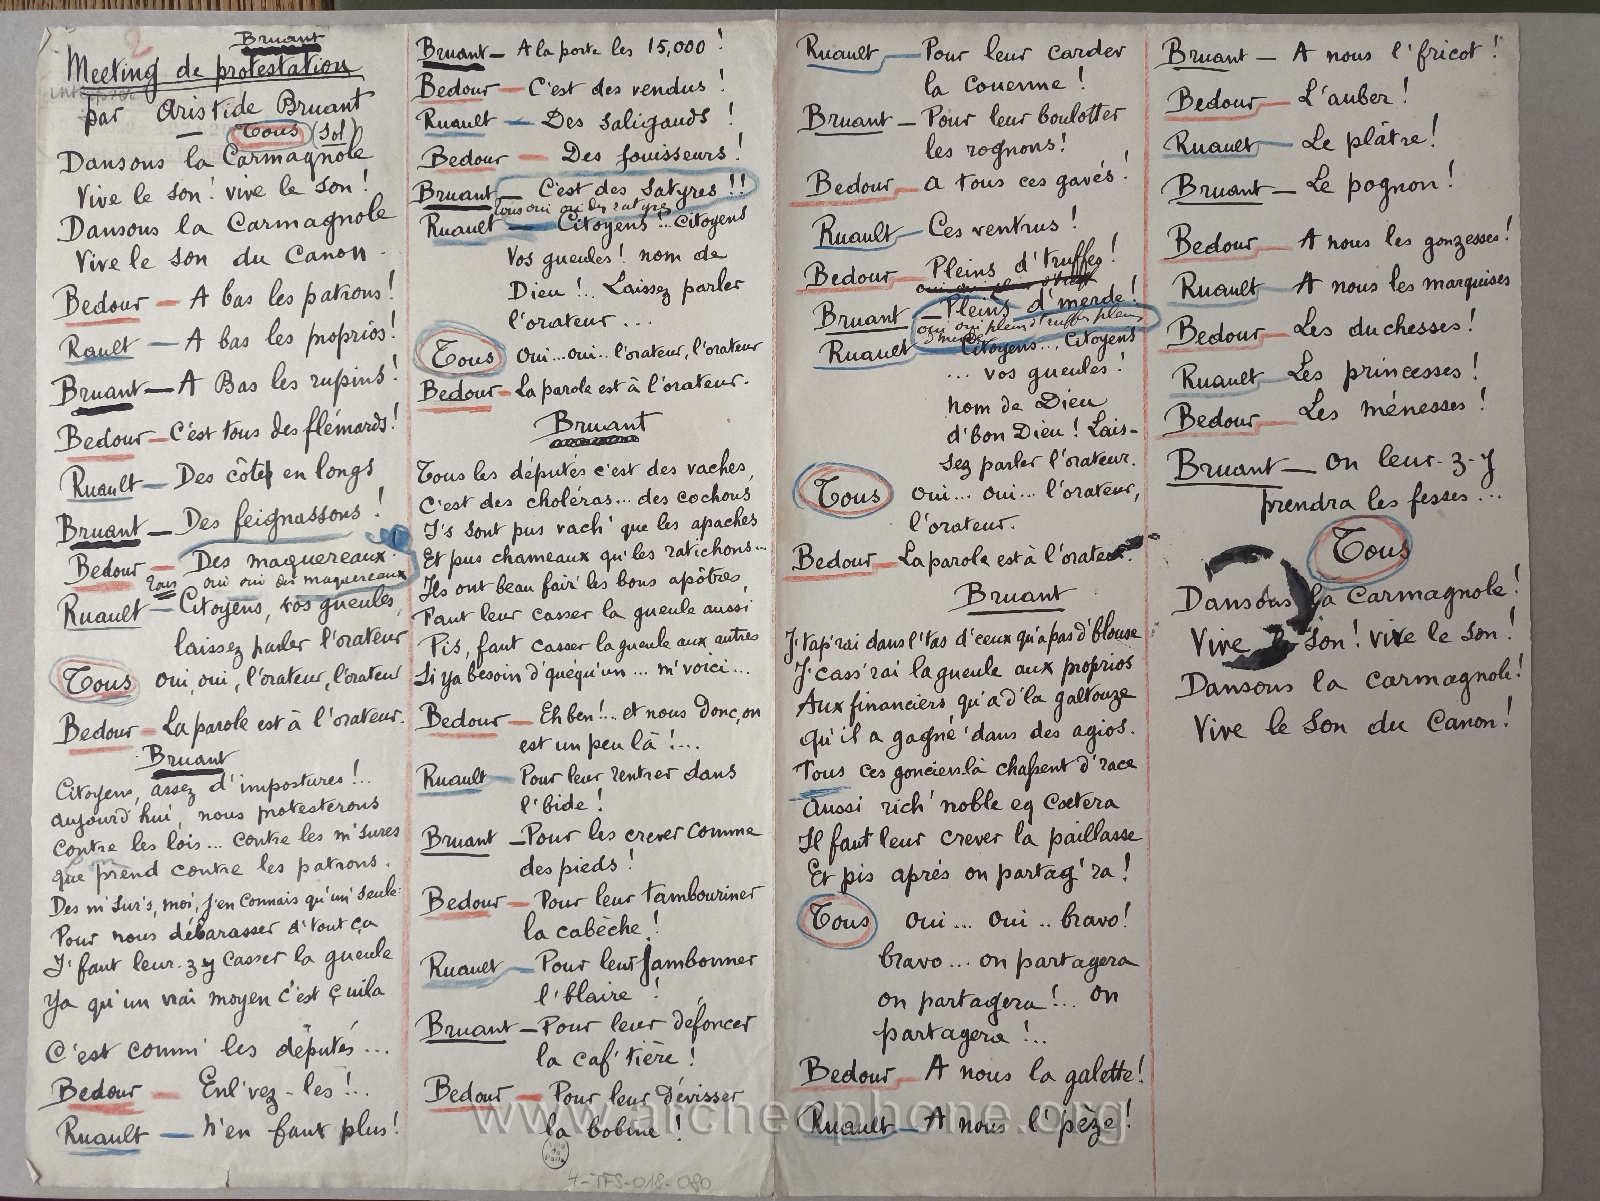 2
Bruant
Meeting de protestation
interprété
par Aristide Bruant
Tous (sol)
Dansons la Carmagnole
Vive le son! vive le son!
Dansons la Carmagnole
Vive le son du Canon.
Bedour - A bas les patrons!
Rault - A bas les proprios!
Bruant - A Bas les rupins!
Bedour - C'est tous des flémards!
Ruault - Des côtes en longs
Bruant - Des feignassons!
Bedour - Des maquereaux.
Tous oui oui des maquereaux
Ruault - Citoyens, vos gueules,
laissez parler l'orateur
Tous oui, oui, l'orateur, l'orateur
Bedour - La parole est à l'orateur.
Bruant
Citoyens, assez d'impostures!..
aujourd'hui, nous protesterons
contre les lois... contre les m'sures
que prend contre les patrons.
Des m'sur's, moi, j'en connais qu'un' seule:
Pour nous débarasser d'tout ça
I' faut leur-z-y casser la gueule
Ya qu'un vrai moyen c'est çuila
C'est comm' les députés...
Bedour - Enl'vez-les!..
Ruault - N'en faut plus!
Bruant - A la porte les 15,000!
Bedour - C'est des vendus!
Ruault - Des saligauds!
Bedour - Des jouisseurs!
Bruant - C'est des satyres!!
Tous oui oui des satyres
Ruault - Citoyens!.. Citoyens
Vos gueules! nom de
Dieu!.. Laissez parler
l'orateur...
Tous Oui...oui.. l'orateur, l'orateur
Bedour - La parole est à l'orateur.
Bruant
Tous les députés c'est des vaches,
C'est des choléras... des cochons,
I's sont pus vach' que les apaches
Et pus chameaux qu'les ratichons...
Ils ont beau fair' les bons apôtres,
Faut leur casser la gueule aussi
Pis, faut casser la gueule aux autres
Si ya besoin d'quéqu'un... m'voici...
Bedour - Eh ben!... et nous donc, on
est un peu là!...
Ruault - Pour leur rentrer dans
l'bide!
Bruant - Pour les crever comme
des pieds!
Bedour - Pour leur tambouriner
la cabèche!
Ruault - Pour leur jambonner
l'blaire!
Bruant - Pour leur défoncer
la caf'tière!
Bedour - Pour leur dévisser
la bobine!
4-TFS-018-080
Ruault - Pour leur carder
la couenne!
Bruant - Pour leur boulotter
les rognons!
Bedour - a tous ces gavés!
Ruault - Ces ventrus!
Bedour - Pleins d'truffes!
Bruant - Pleins d'merde!
oui oui pleins d'truffes pleins
d'merde
Ruault Citoyens... Citoyens
... vos gueules!
nom de Dieu
d'bon Dieu! Lais-
sez parler l'orateur.
Tous oui... oui... l'orateur,
l'orateur.
Bedour - La parole est à l'orateur.
Bruant
J'tap'rai dans l'tas d'ceux qu'a pas d'blouse
J'cass'rai la gueule aux proprios
Aux financiers qu'a d'la galtouze
qu'il a gagné' dans des agios.
Tous ces gonciers là chassent d'race
Aussi rich' noble eq Cœtera
Il faut leur crever la paillasse
Et pis après on partag'ra!
Tous oui... oui.. bravo!
bravo... on partagera
on partagera!.. on
partagera!...
Bedour - A nous la galette!
Ruault - A nous l'pèze!
Bruant - A nous l'fricot!
Bedour - L'auber!
Ruault - Le plâtre!
Bruant - Le pognon!
Bedour - A nous les gonzesses!
Ruault - A nous les marquises
Bedour - Les duchesses!
Ruault - Les princesses!
Bedour - Les ménesses!
Bruant - On leur-z-y
prendra les fesses...
Tous
Dansons la Carmagnole!
Vive le son! vive le son!
Dansons la Carmagnole!
Vive le son du Canon!
www.archeophone.org